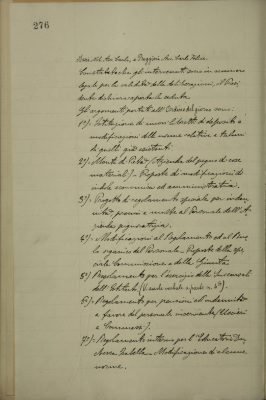 276
Constatato che gli intervenuti sono in numero
legale per la validità delle deliberazioni, il Presi-
dente dichiara aperta la seduta.
Gli argomenti portati all'Ordine del giorno sono:
1º/- Istituzione di nuovi libretti di deposito e
modificazioni delle norme relative a taluni
di quelli già esistenti.
2º/- Monte di Pietà (Azienda del pegno di cose
materiali) - Proposte di modificazioni di
indole economica ed amministrativa.
3º/- Progetto di regolamento speciale per inden-
nità, premi e multe al Personale dell'A-
zienda pignoratizia.
4º/- Modificazioni al Regolamento ed al Ruo-
lo organico del Personale. Proposte della spe-
ciale Commissione e della Giunta.
5º/ Regolamento per l'esercizio delle Succursali
dell'Istituto (Vedi verbale a pag.
6º/- Regolamento per pensioni ed indennità
a favore del personale inserviente (Uscieri
e Commessi).
7º/- Regolamento interno per l'Educatorio Duchessa
Isabella - Modificazione di alcune
norme.